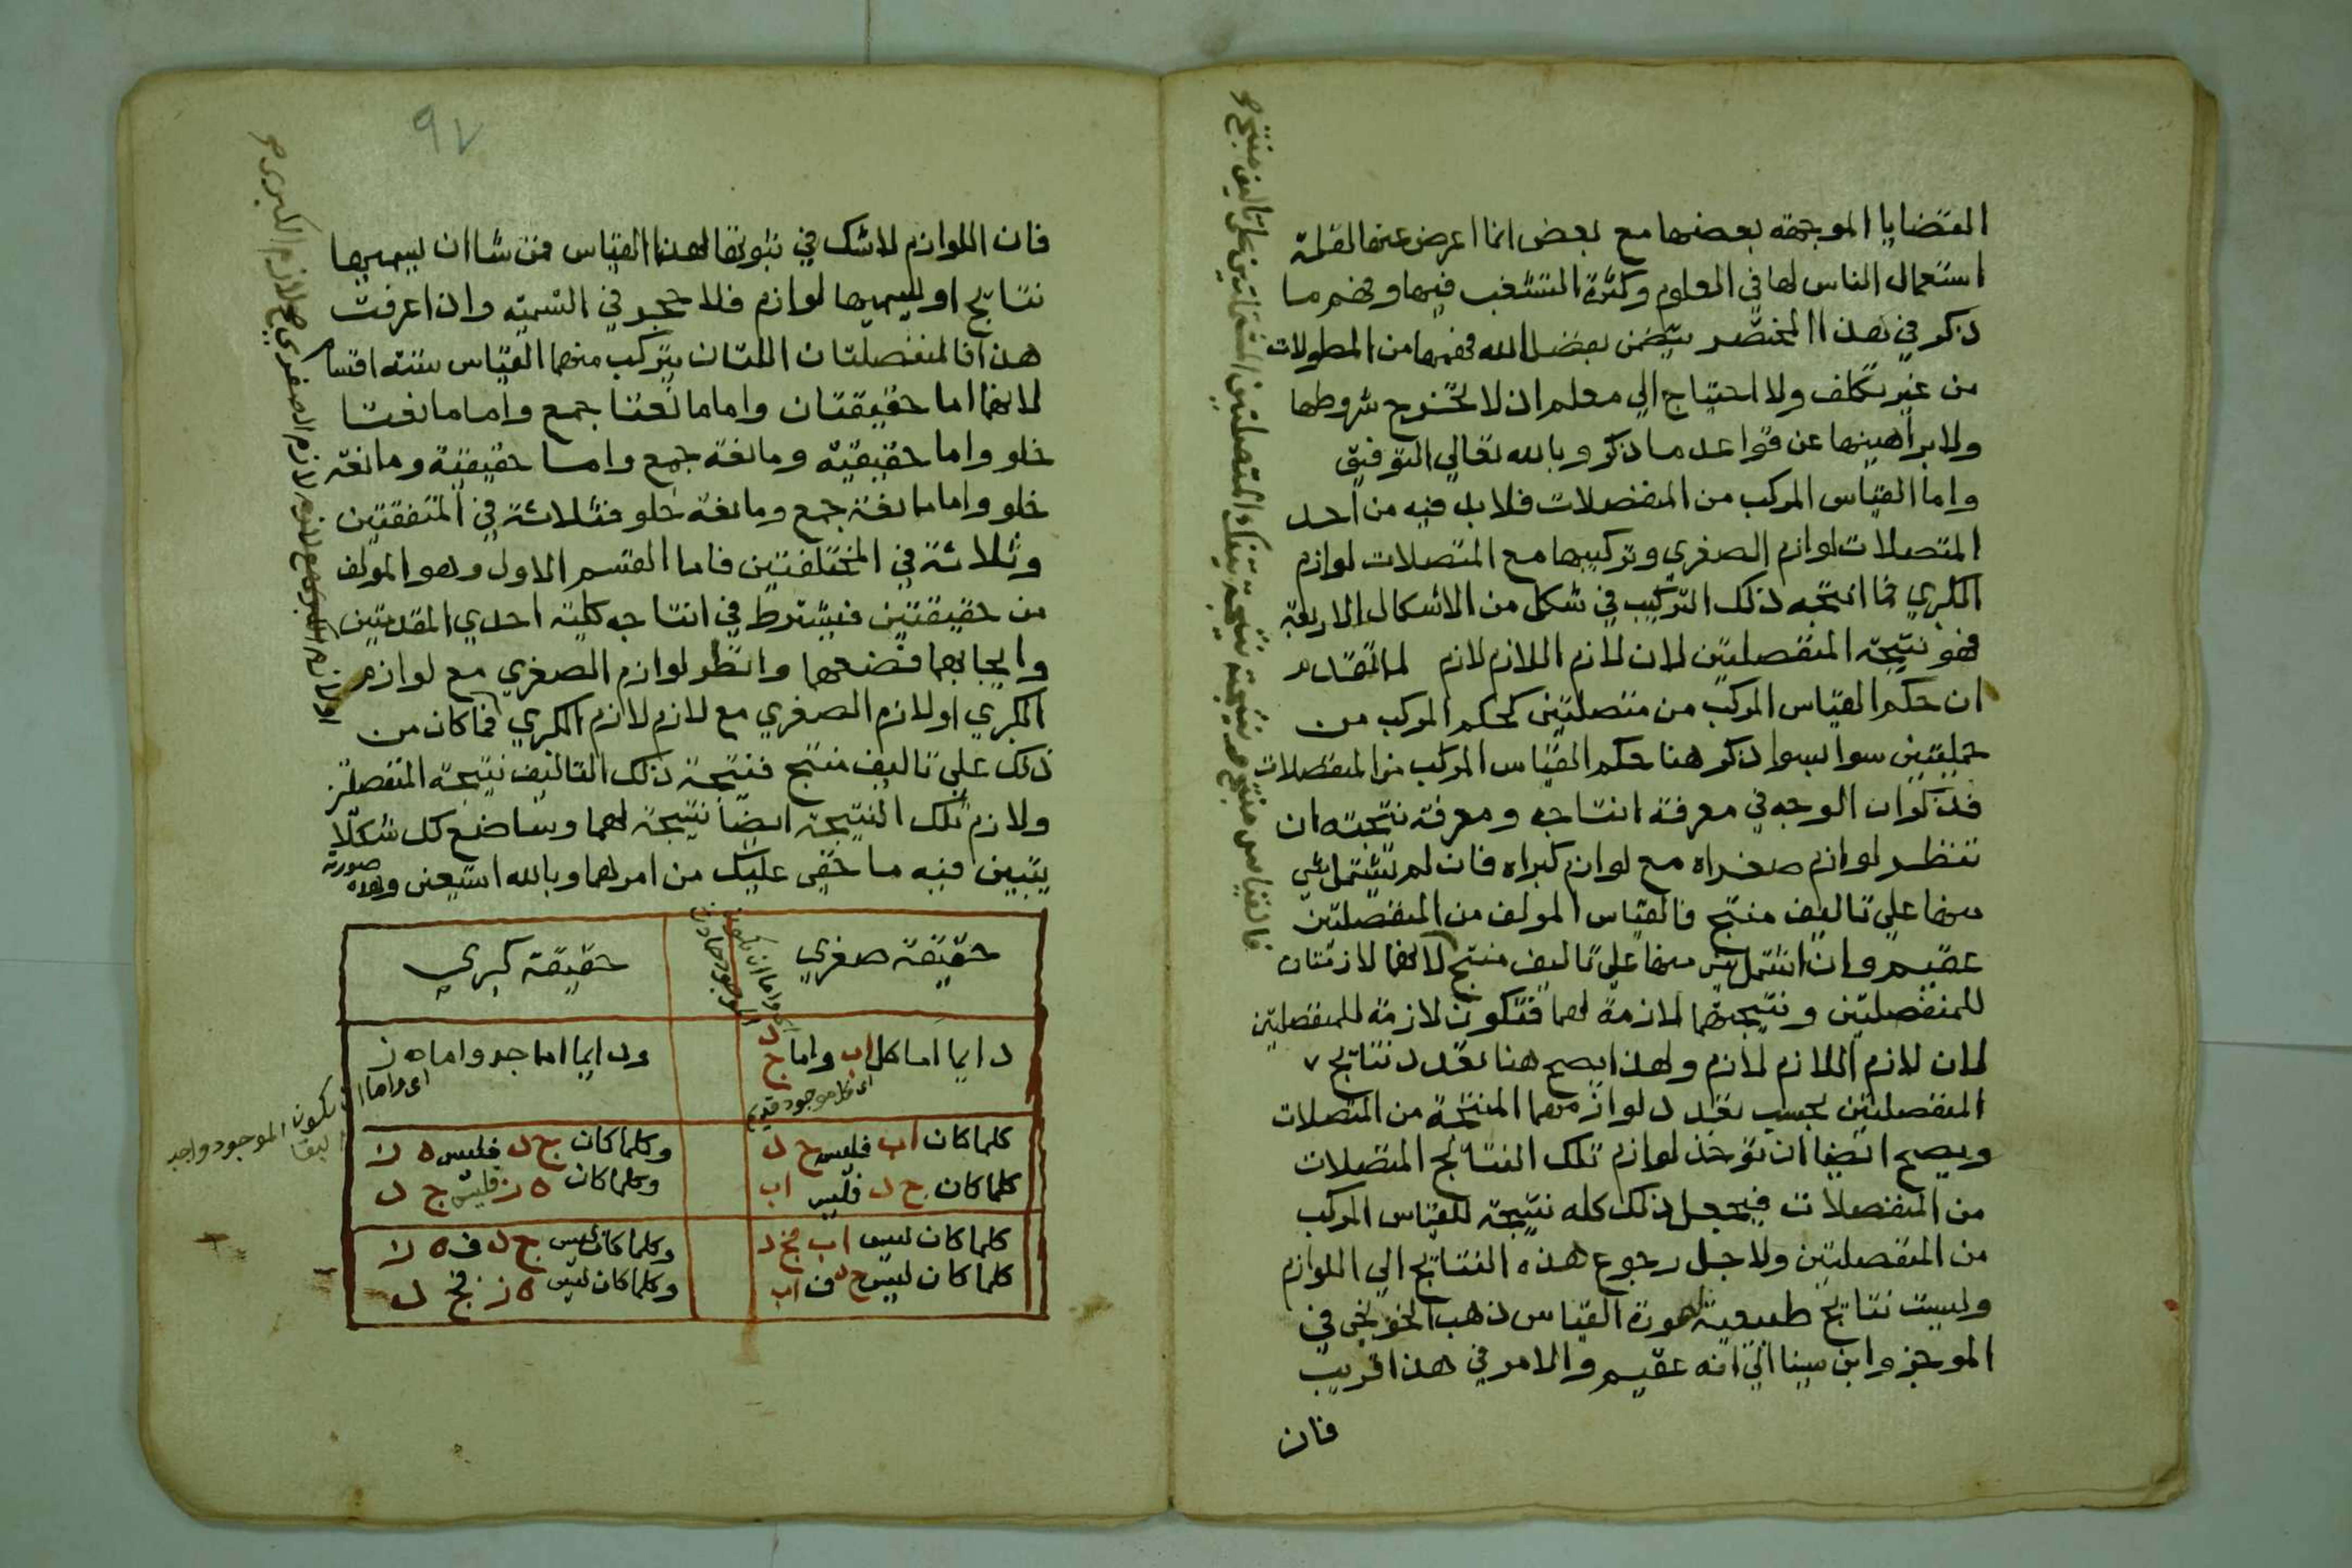 القضايا الموجهة بعضها مع بعض انما اعرض عنها لقلة
استعمال الناس لها في العلوم وكثرة التشعب فيها وفهم ما
ذكر في هذا المختصر يتضمن بفضل الله فهمها من المطولات
من غير تكلف ولا احتياج الي معلم اذ لا تخرج شروطها
ولا براهينها عن قواعد ما ذكر وبالله تعالي التوفيق
واما القياس المركب من المنفصلات فلا بد فيه من احد
المتصلات لوازم الصغري وتركيبها مع المتصلات لوازم
الكبري فما انتجه ذلك التركيب في شكل من الاشكال الاربعة
فهو نتيجة المنفصلتين لان لازم اللازم لازم لما تقدم
ان حكم القياس المركب من متصلتين كحكم المركب من
حمليتين سوا بسوا ذكر هنا حكم القياس المركب من المنفصلات
فذكر ان الوجه في معرفة انتاجه ومعرفة نتيجته ان
تنظر لوازم صغراه مع لوازم كبراه فان لم يشتمل شي
منها علي تاليف منتج فالقياس المولف من المنفصلتين
عقيم وان اشتمل شي منها علي تاليف منتج لانهما لازمتان
للمنفصلتين ونتيجتهما لازمة لهما فتكون لازمة للمنفصلتين
لان لازم اللازم لازم ولهذا يصح هنا تعدد نتايج
المنفصلتين بحسب تعدد لوازمهما المنتجة من المتصلات
ويصح ايضا ان توخذ لوازم تلك النتايج المتصلات
من المنفصلات فيجعل ذلك كله نتيجة للقياس المركب
من المنفصلتين ولاجل رجوع هذه النتايج الي اللوازم
وليست نتايج طبيعية لصورة القياس ذهب الخونجي في
الموجز وابن سينا الي انه عقيم والامر في هذا قريب
فان
فالقياس منتج ونتيجة نتيجة تينك المتصلتين المشتملتين علي تاليف منتج
٩٧
فان اللوازم لا شك في ثبوتها لهذا القياس فمن شا ان يسميها
نتايج او يسميها لوازم فلا حجر في التسمية واذا عرفت
هذا فالمنفصلتان اللتان يتركب منهما القياس ستة اقسام
لانهما اما حقيقتان واما مانعتا جمع واما مانعتا
خلو واما حقيقية ومانعة جمع واما حقيقية ومانعة
خلو واما مانعة جمع ومانعة خلو فثلاثة في المتفقتين
وثلاثة في المختلفتين فاما القسم الاول وهو المولف
من حقيقتين فيشترط في انتاجه كلية احدي المقدمتين
وايجابهما فضعهما وانظر لوازم الصغري مع لوازم
الكبري او لازم الصغري مع لازم لازم الكبري فما كان من
ذلك علي تاليف منتج فنتيجة ذلك التاليف نتيجة المنفصلتين
ولازم تلك النتيجة ايضا نتيجة لهما وساضع لك شكلا
يتبين فيه ما خفي عليك من امرهما وبالله استعين وهذه صورته
او لازم الكبري مع لازم لازم الصغري مع لازم الكبري
حقيقة صغري
حقيقة كبري
دايما اما كل اب واما ج د
اي كل موجود قديم
ودايما اما جد واما ه ز
اي واما ان يكون الموجود واجد البقا
كلما كان اب فليس ج د
وكلما كان ج د فليس ه ز
كلما كان ج د فليس اب
وكلما كان ه ز فليس ج د
كلما كان ليس اب فج د
وكلما كان ليس ج د ف ه ز
كلما كان ليس ج د ف اب
وكلما كان ليس ه ز فج د